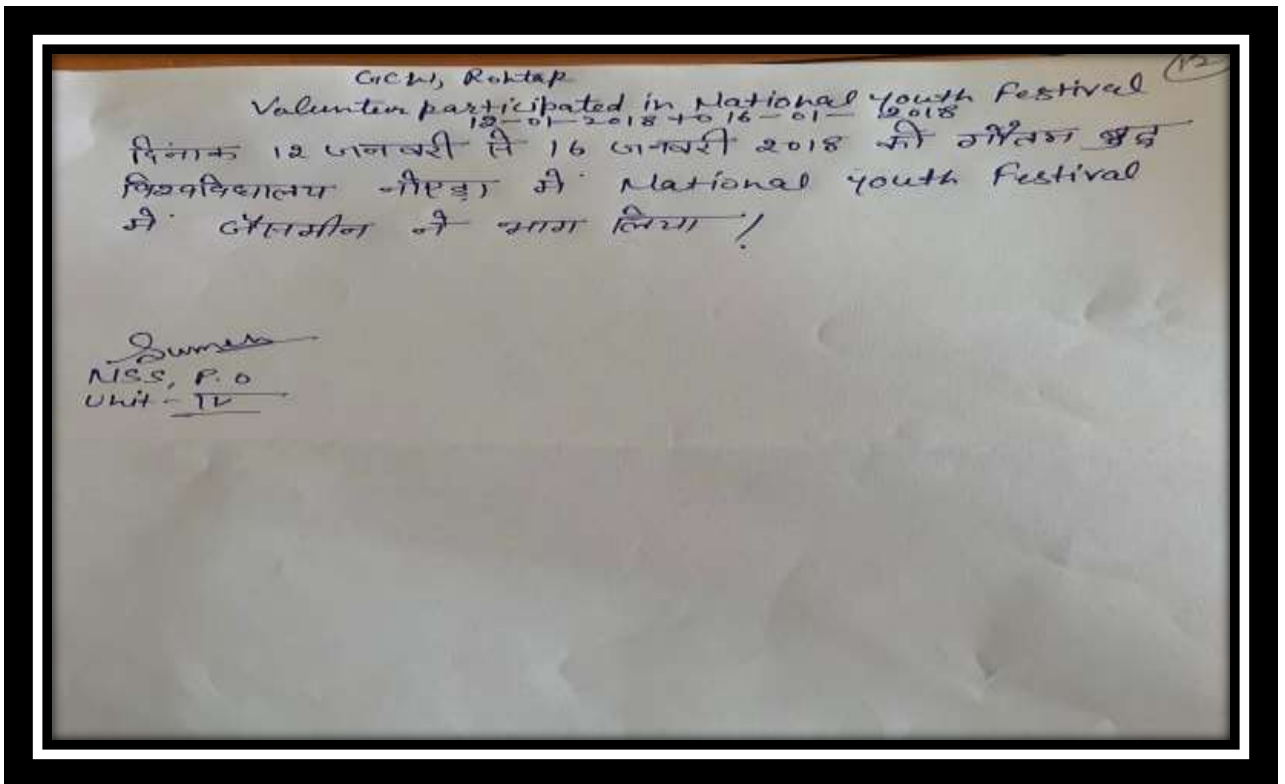 GCW, Rohtak
Valunteer participated in National youth Festival
12-01-2018 to 16-01-2018
दिनांक 12 जनवरी से 16 जनवरी 2018 को गौतम बुद्ध
विश्वविद्यालय नोएडा में National youth Festival
में जैसमीन ने भाग लिया /
NSS, P.O
Unit - IV